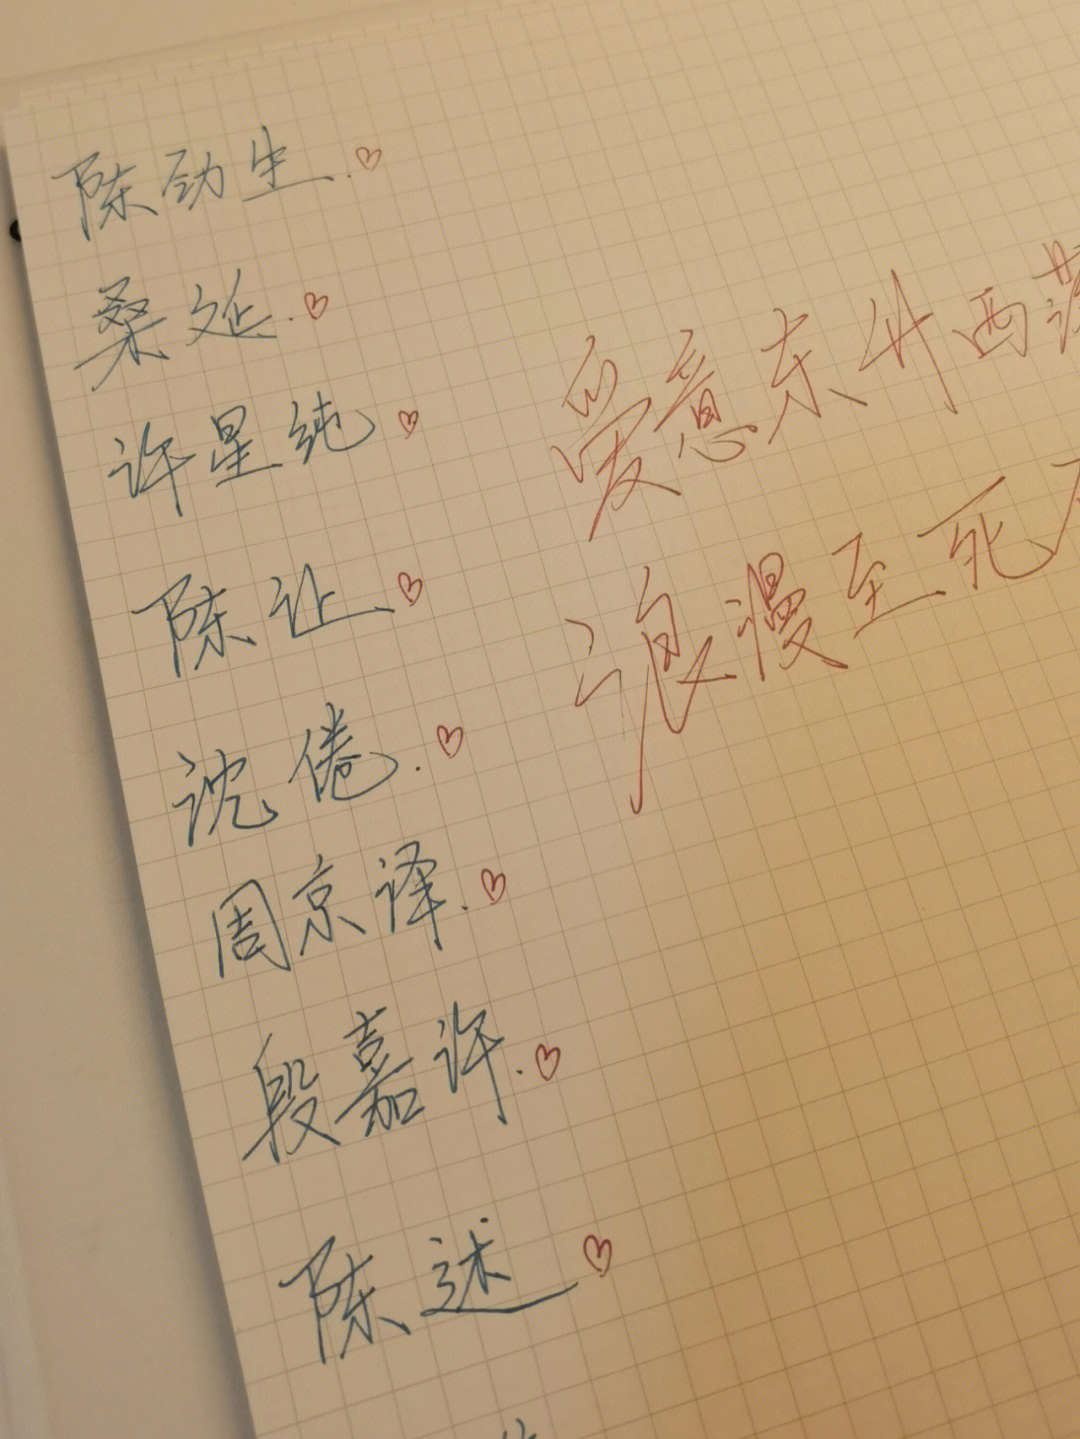 陈劲生.
桑延.
许星纯.
陈让
沈倦.
周京译.
段嘉许.
陈述
爱意东升西落
浪漫至死不